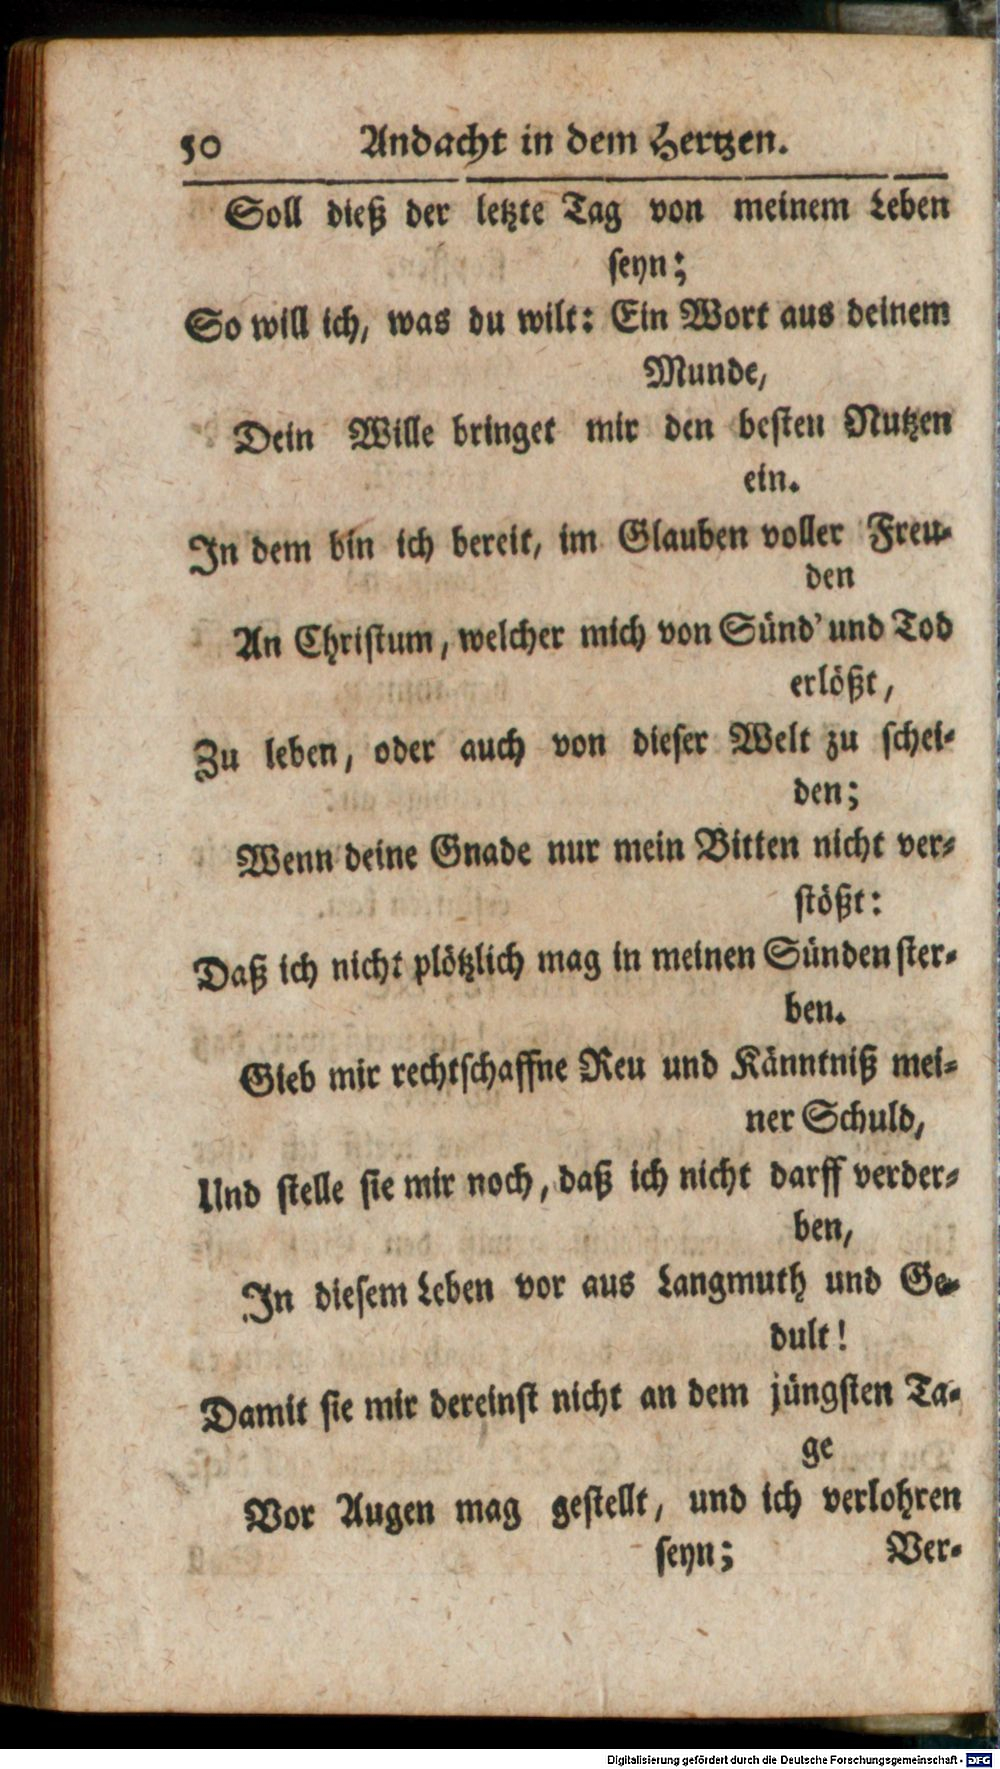 50 Andacht in dem Hertzen.
Soll dieß der letzte Tag von meinem Leben
seyn;
So will ich, was du wilt: Ein Wort aus deinem
Munde,
Dein Wille bringet mir den besten Nutzen
ein.
In dem bin ich bereit, im Glauben voller Freu-
den
An Christum, welcher mich von Sünd' und Tod
erlößt,
Zu leben, oder auch von dieser Welt zu schei-
den;
Wenn deine Gnade nur mein Bitten nicht ver-
stößt:
Daß ich nicht plötzlich mag in meinen Sünden ster-
ben.
Gieb mir rechtschaffne Reu und Känntniß mei-
ner Schuld,
Und stelle sie mir noch, daß ich nicht darff verder-
ben,
In diesem Leben vor aus Langmuth und Ge-
dult!
Damit sie mir dereinst nicht an dem jüngsten Ta-
ge
Vor Augen mag gestellt, und ich verlohren
seyn; Ver-
Digitalisierung gefördert durch die Deutsche Forschungsgemeinschaft - DFG